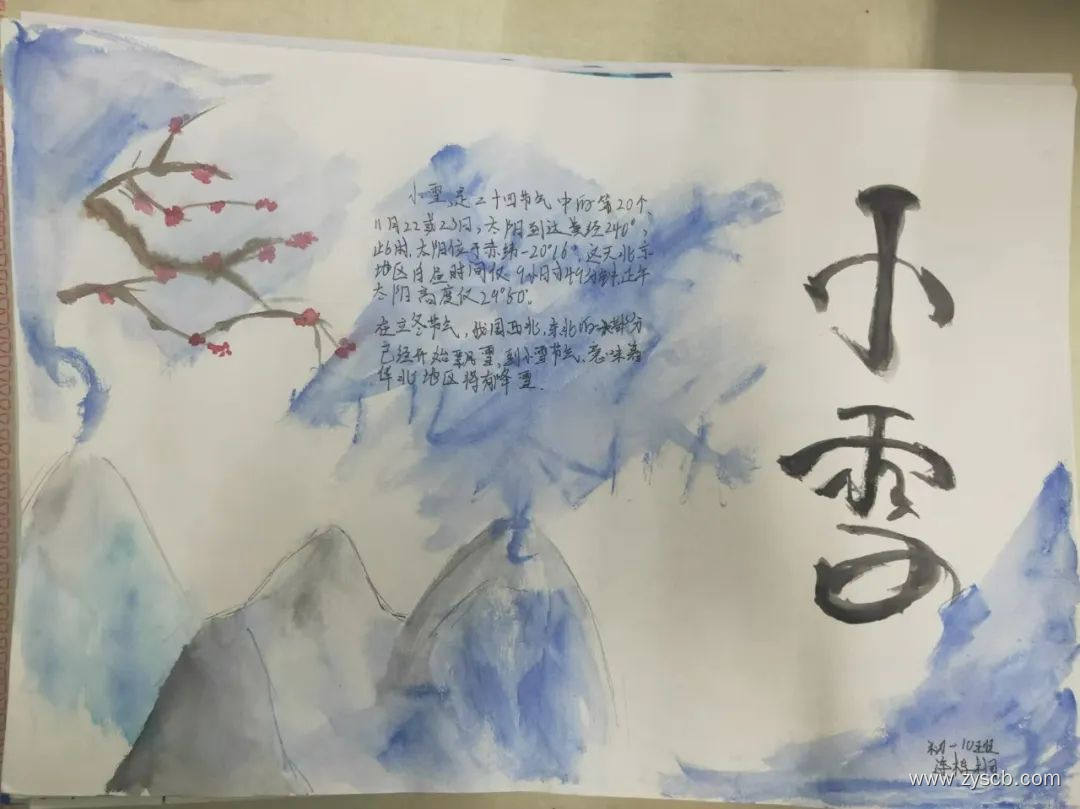 小雪
小雪,是二十四节气中的第20个、
11月22或23日,太阳到达黄经240°,
此时,太阳位于赤纬-20°16°.这天北京
地区白昼时间仅9小时49分钟,正午
太阳高度仅29°50°。
在立冬节气,我国西北,东北的大部分
已经开始飘雪,到小雪节气,意味着
华北地区将有降雪.
初一10班
www.zyscb.com